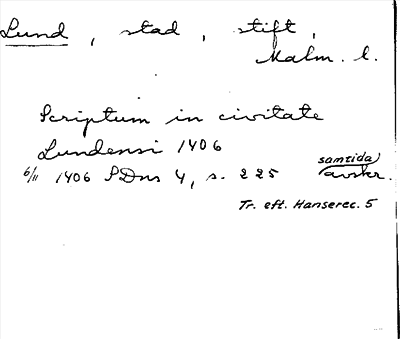 Lund, stad, stift,
Malm. l.
Scriptum in civitate
Lundensi 1406
6/11 1406 SDns 4, s. 225 samtida avskr.
Tr. eft. Hanserec. 5